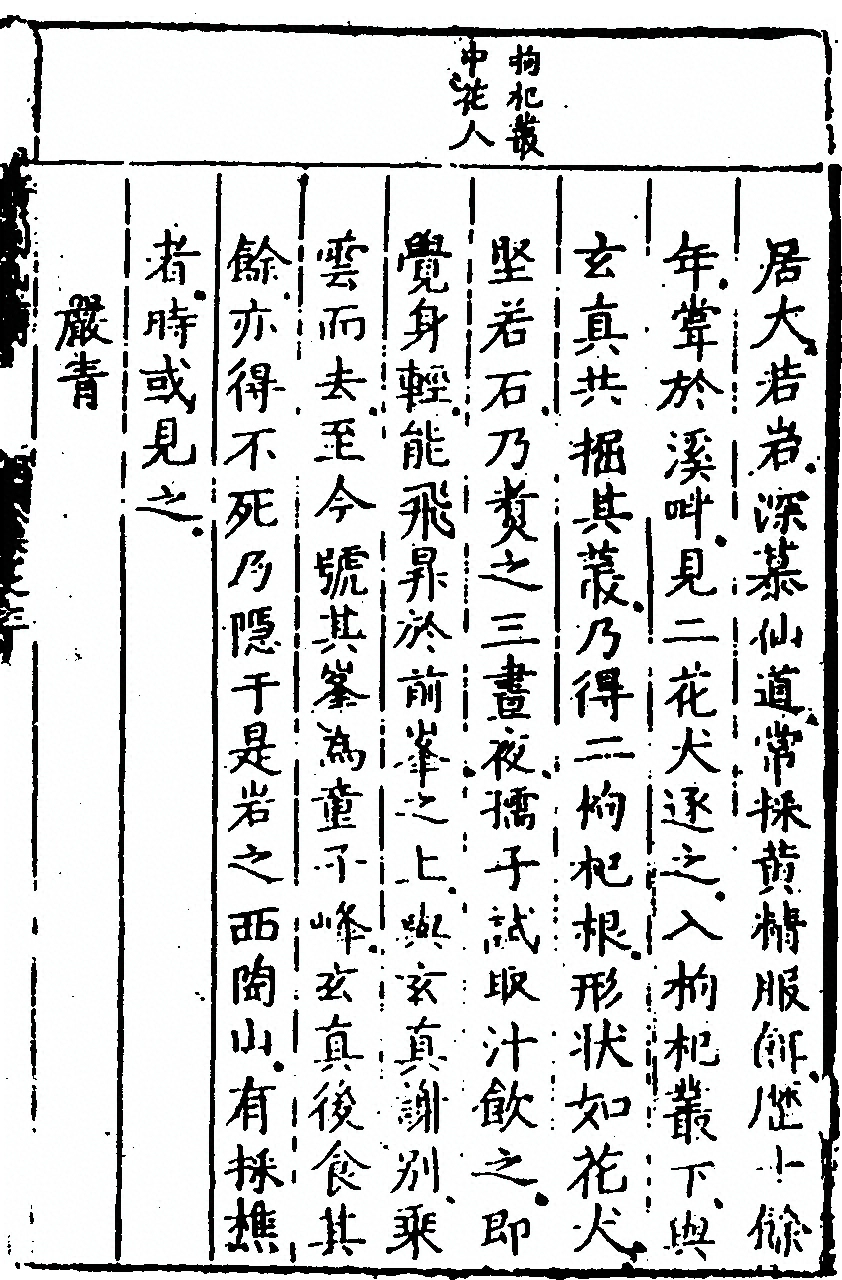 枸杞叢
中花人
居大若岩深慕仙道常採黃精服餌歷十餘
年嘗於溪畔見二花犬逐之入枸杞叢下與
玄真共掘其叢乃得二枸杞根形狀如花犬
堅若石乃煑之三晝夜孺子試取汁飲之即
覺身輕能飛昇於前峯之上與玄真謝別乘
雲而去至今號其峯為童子峰玄真後食其
餘亦得不死乃隠于是岩之西陶山有採樵
者時或見之
嚴青